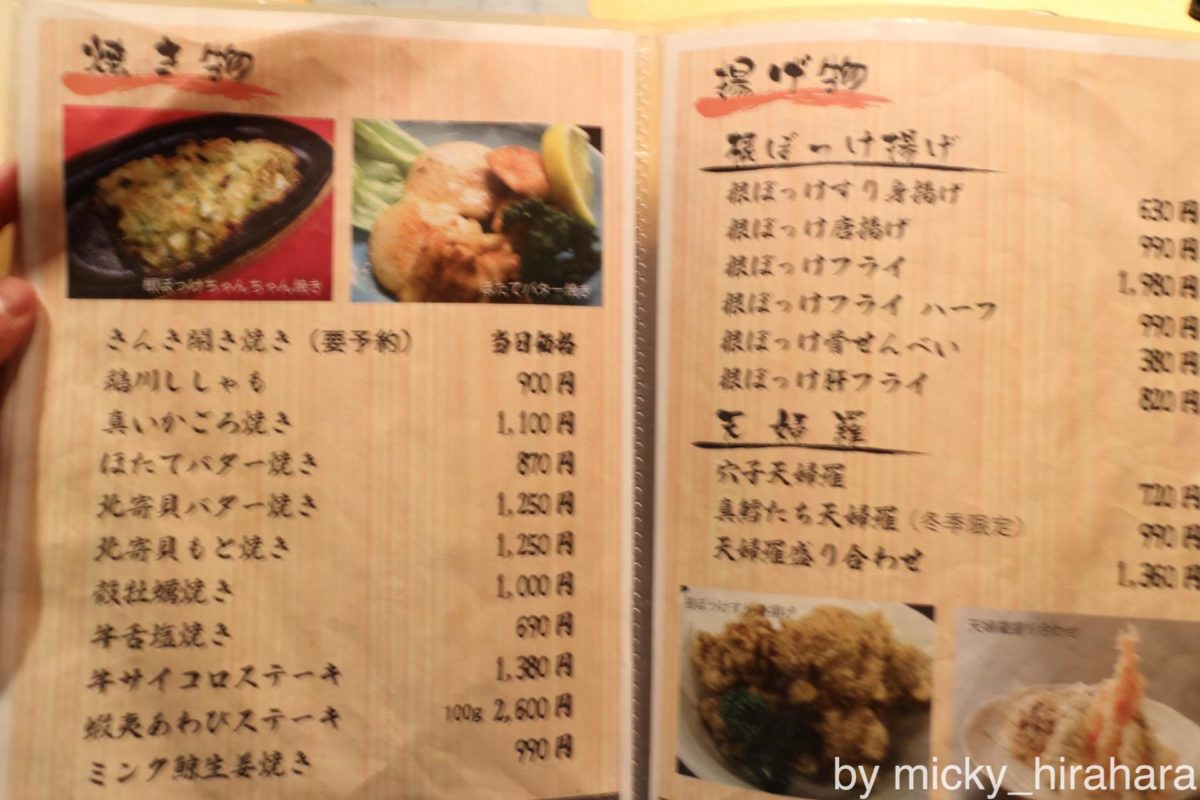 焼き物
根ぼっけちゃんちゃん焼き
ほたてバター焼き
きんき開き焼き（要予約） 当日価格
鵡川ししゃも 900円
真いかごろ焼き 1,100円
ほたてバター焼き 870円
北寄貝バター焼き 1,250円
北寄貝もと焼き 1,250円
殻牡蠣焼き 1,000円
牛舌塩焼き 690円
牛サイコロステーキ 1,380円
蝦夷あわびステーキ 100g 2,600円
ミンク鯨生姜焼き 990円
揚げ物
根ぼっけ揚げ
根ぼっけすり身揚げ 630円
根ぼっけ唐揚げ 990円
根ぼっけフライ 1,980円
根ぼっけフライ ハーフ 990円
根ぼっけ骨せんべい 380円
根ぼっけ肝フライ 820円
天婦羅
穴子天婦羅 720円
真鱈たち天婦羅（冬季限定） 990円
天婦羅盛り合わせ 1,360円
根ぼっけすり身揚げ
天婦羅盛り合わせ
by micky_hirahara